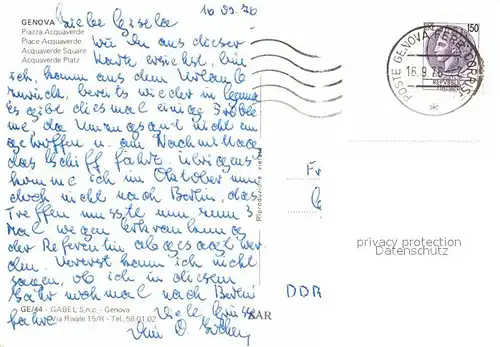 GENOVA
Piazza Acquaverde
Place Acquaverde
Acquaverde Square
Acquaverde Platz
Liebe Gisela 16.09.76
Wie Du aus dieser
Karte ersiehst, bin
ich, komm aus dem Urlaub
zurück, bereits wieder in
Es gibt diesmal einige Proble
me, da Umzugsgut nicht ein
getroffen u. am Nachmittag
das Schiff fährt. Übrigens
komme ich im Oktober nun
doch nicht nach Berlin, das
Treffen musste nun zum 3
Mal wegen Erkrankung
der Referentin abgesagt wer
den. Vorerst kann ich nicht
sagen, ob ich in diesem
Jahr nochmal nach Berlin
fahre. Viele Grüsse
GE/44 - GABEL S.n.c. - Genova
Via Rivale 15/R - Tel. 58.01.02
KAR
Riproduzione vietata
150
POSTE GENOVA FERR.
16.9.76
Fr
DDR
privacy protection
Datenschutz